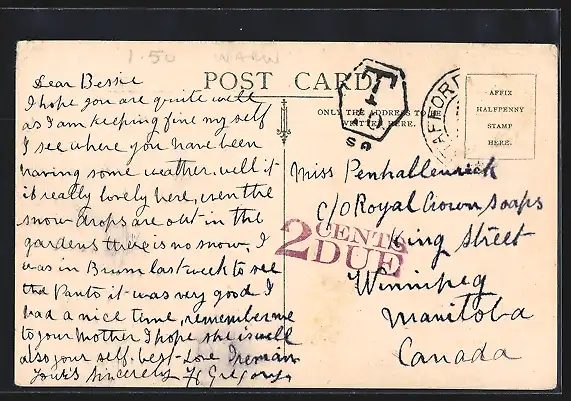 1.50 WARW
POST CARD
Dear Bessie
I hope you are quite well
as I am keeping fine my self
I see where you have been
having some weather. well it
is really lovely here, even the
snow drops are out in the
gardens there is no snow. I
was in Brum last week to see
the Panto it was very good I
had a nice time, remember me
to your Mother I hope she is well
also your self. best-Love I remain
Yours Sincerely H Gregory
ONLY THE ADDRESS TO BE
WRITTEN HERE.
T
AFFIX
HALFPENNY
STAMP
HERE.
Miss Penhallenrick
C/O Royal Crown Soaps
King Street
Winnipeg
Manitoba
Canada
2 CENTS
DUE